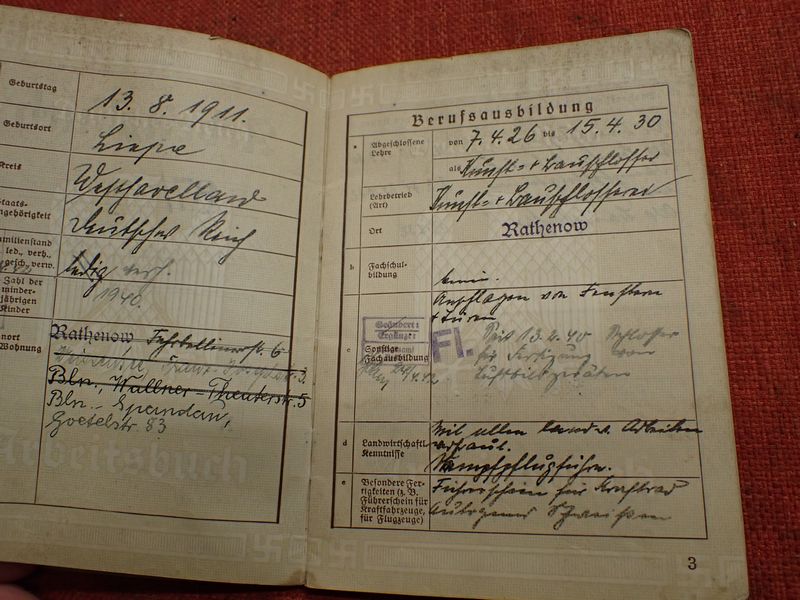 Geburtstag 13. 8. 1911.
Geburtsort Liepe
Kreis Westhavelland
Staats-
angehörigkeit Deutsches Reich
Familienstand
led., verh.,
gesch., verw. ledig verh.
Zahl der
minder-
jährigen
Kinder
1940.
Wohnort
Wohnung
Rathenow, Fehrbellinerstr. 6
Bln., Wallner-Theaterstr. 5
Bln.- Spandau,
Goetelstr. 83
Arbeitsbuch
Berufsausbildung
a Abgeschlossene
Lehre
von 7. 4. 26 bis 15. 4. 30
als Kunst- + Bauschlosser
Lehrbetrieb
(Art)
Kunst- + Bauschlosserei
Ort Rathenow
b Fachschul-
bildung
keine.
c Sonstige
Fachausbildung
Anschlagen von Fenstern
+ Türen
Geändert:
Ergänzt:
Fl.
24/4.42
Seit 13.2.40 Schlosser
für Fertigung von
Luftbildgeräten
d Landwirtschaftl.
Kenntnisse
Mit allen landw. Arbeiten
vertraut.
Dampfpflugführer.
e Besondere Fer-
tigkeiten (z. B.
Führerschein für
Kraftfahrzeuge,
für Flugzeuge)
Führerschein für Kraftrad
Autogenes Schweißen
3